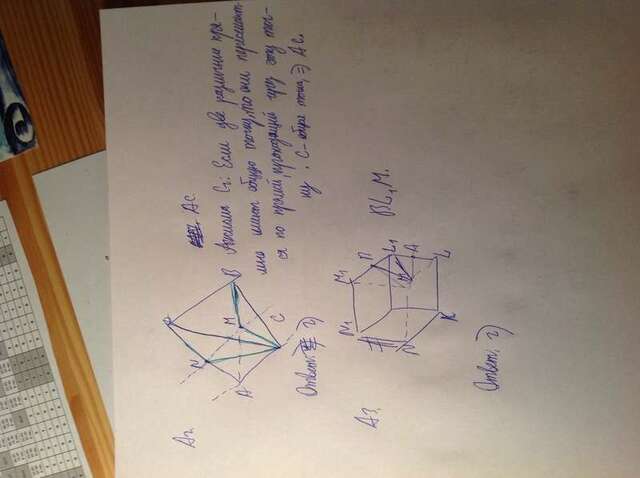 А2.
N
A
M
B
C
АС.
Аксиома С2: Если две различные пря-
мые имеют общую точку, то они пересекают-
ся по прямой, проходящей через эту точ-
ку. С-общая точка, ⇒ АС.
Ответ: 2)
А3.
N1
M1
П
L1
N
M
A
K
L
BL1M.
Ответ: 2)